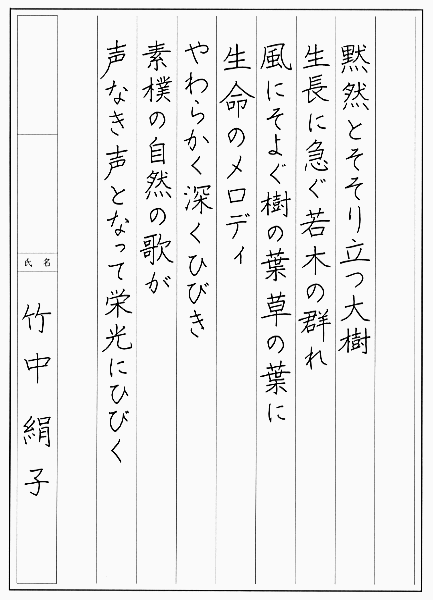 黙然とそそり立つ大樹
生長に急ぐ若木の群れ
風にそよぐ樹の葉草の葉に
生命のメロディ
やわらかく深くひびき
素樸の自然の歌が
声なき声となって栄光にひびく
氏名
竹中絹子